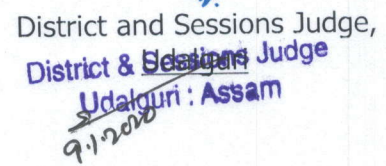 District and Sessions Judge,
Udalguri
District & Sessions Judge
Udalguri : Assam
9.1.2020